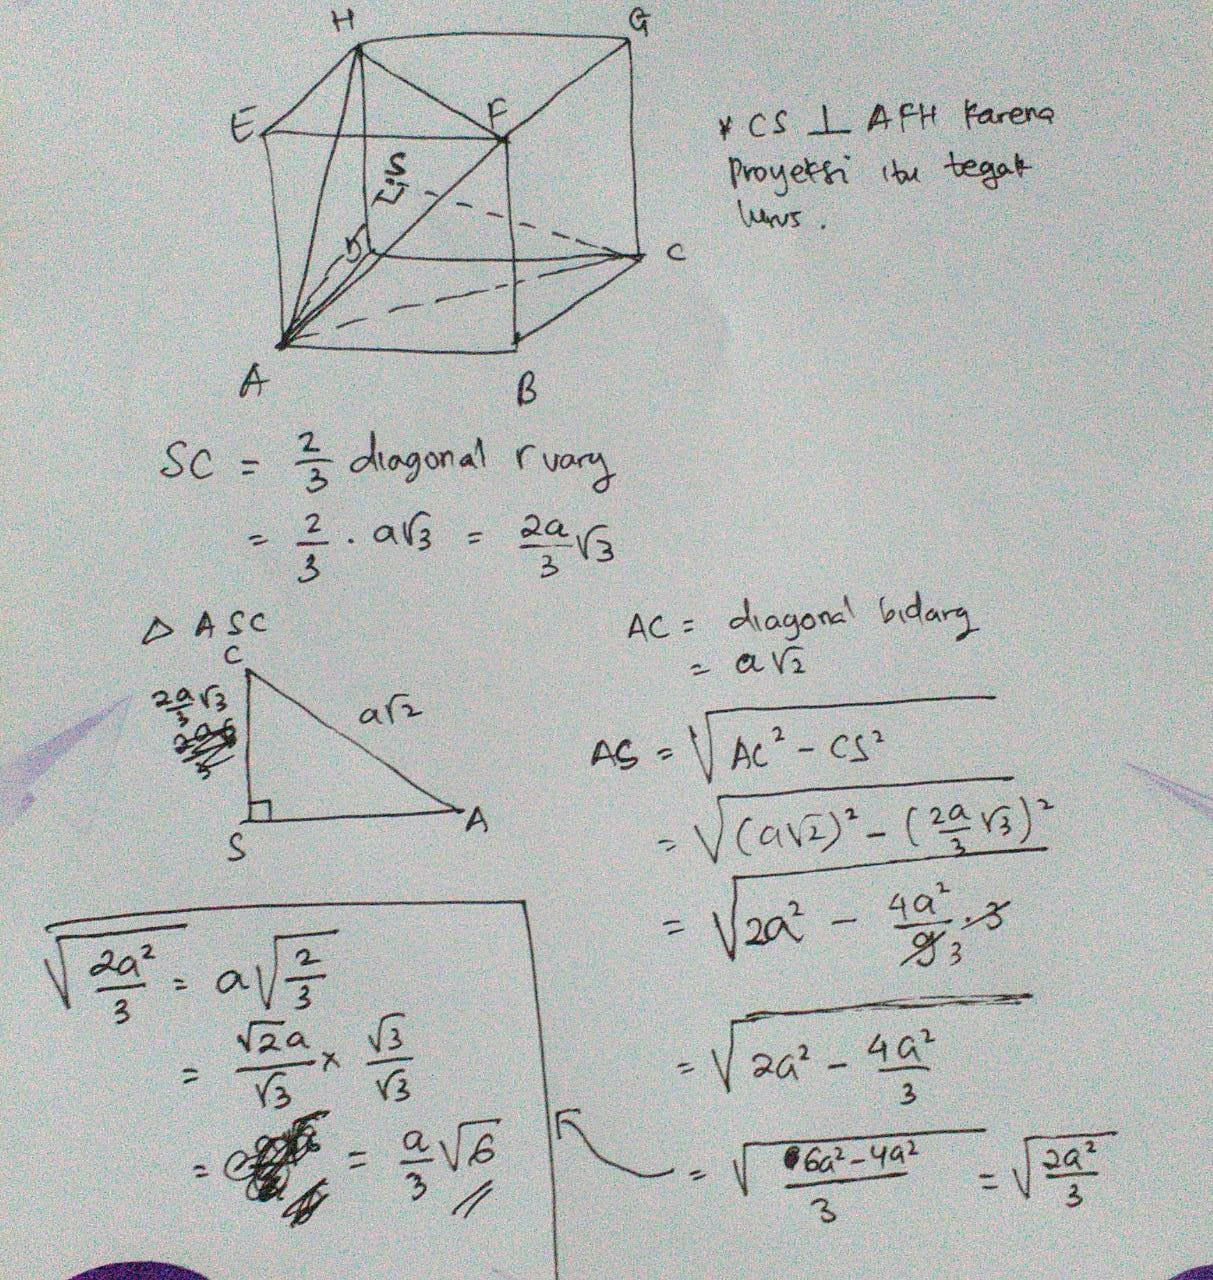 H
G
E
F
S
D
C
A
B
* CS ⊥ AFH Karena
Proyeksi itu tegak
lurus.
SC = 2/3 diagonal ruang
= 2/3 . a√3 = 2a/3 √3
△ ASC
C
2a/3 √3
a√2
S
A
AC = diagonal bidang
= a√2
AS = √(AC² - CS²)
= √((a√2)² - (2a/3 √3)²)
= √(2a² - 4a²/9 . 3) 3
= √(2a² - 4a²/3)
= √((6a² - 4a²)/3) = √(2a²/3)
√(2a²/3) = a√(2/3)
= √2a/√3 × √3/√3
= = a/3 √6